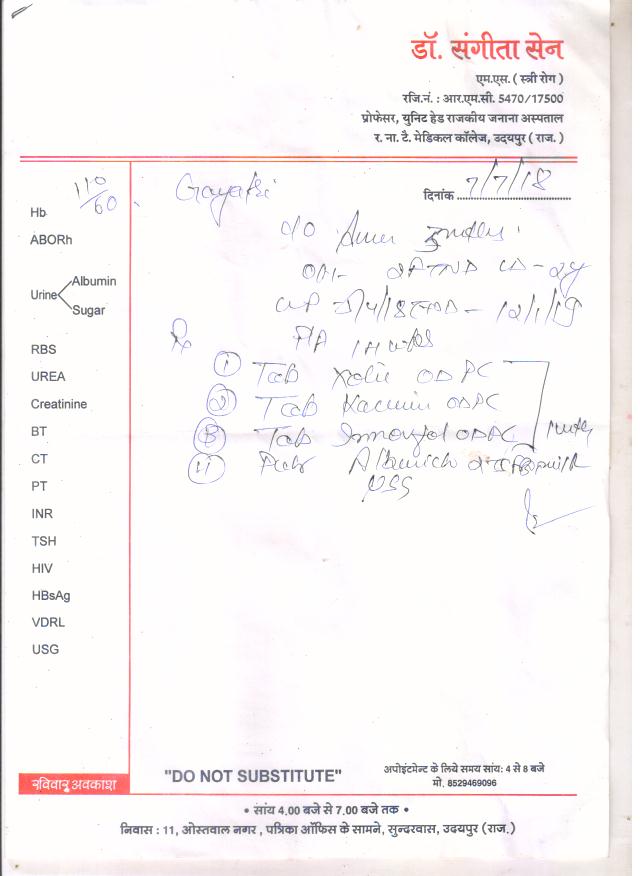 डॉ. संगीता सेन
एम.एस. ( स्त्री रोग )
रजि.नं. : आर.एम.सी. 5470/17500
प्रोफेसर, युनिट हेड राजकीय जनाना अस्पताल
र. ना. टै. मेडिकल कॉलेज, उदयपुर ( राज. )
110/60
Gayatri
दिनांक 7/7/18
Hb
ABORh
Urine Albumin
Sugar
RBS
UREA
Creatinine
BT
CT
PT
INR
TSH
HIV
HBsAg
VDRL
USG
c/o
LMP 5/4/18 EDD - 12/1/19
P/A 14 wks
Rx
① Tab OD PC
② Tab OD PC
③ Tab OD PC
④
रविवार अवकाश
"DO NOT SUBSTITUTE"
अपोइंटमेन्ट के लिये समय सांय: 4 से 8 बजे
मो. 8529469096
• सांय 4.00 बजे से 7.00 बजे तक •
निवास : 11, ओस्तवाल नगर , पत्रिका ऑफिस के सामने, सुन्दरवास, उदयपुर (राज.)